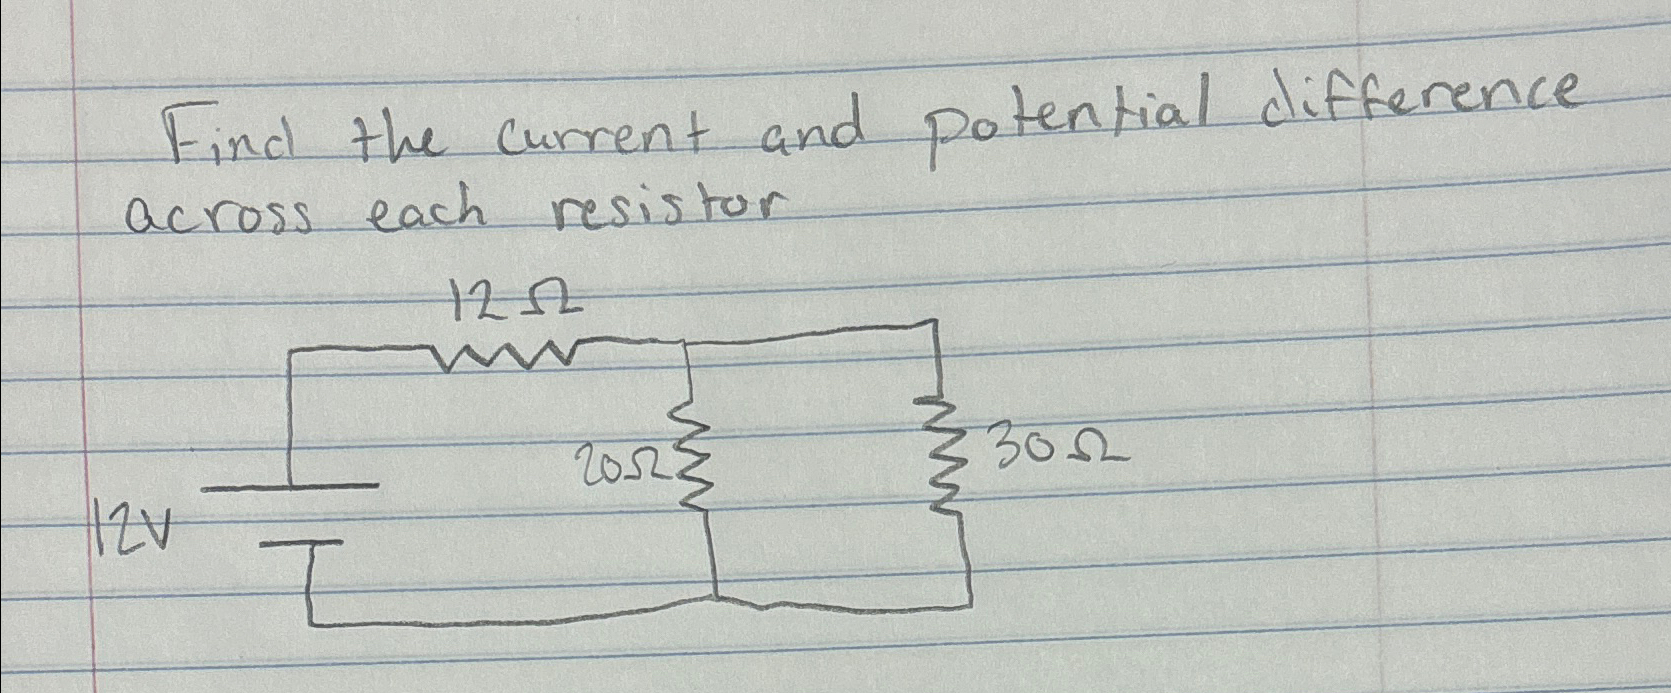 Find the current and potential difference
across each resistor
12Ω
20Ω
30Ω
12V